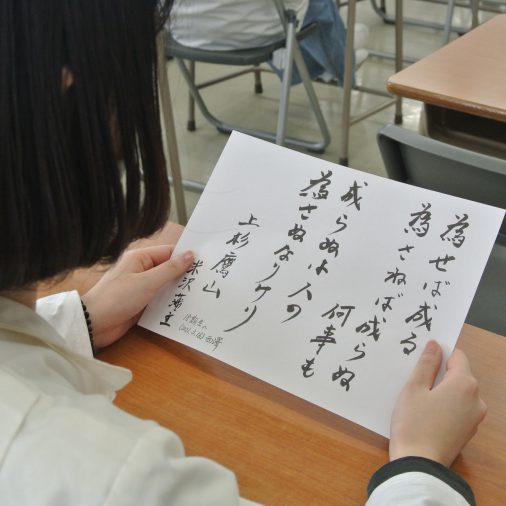 為せば成る
為さねば成らぬ
何事も
成らぬハ人の
為さぬなりケリ
上杉鷹山
米沢藩主